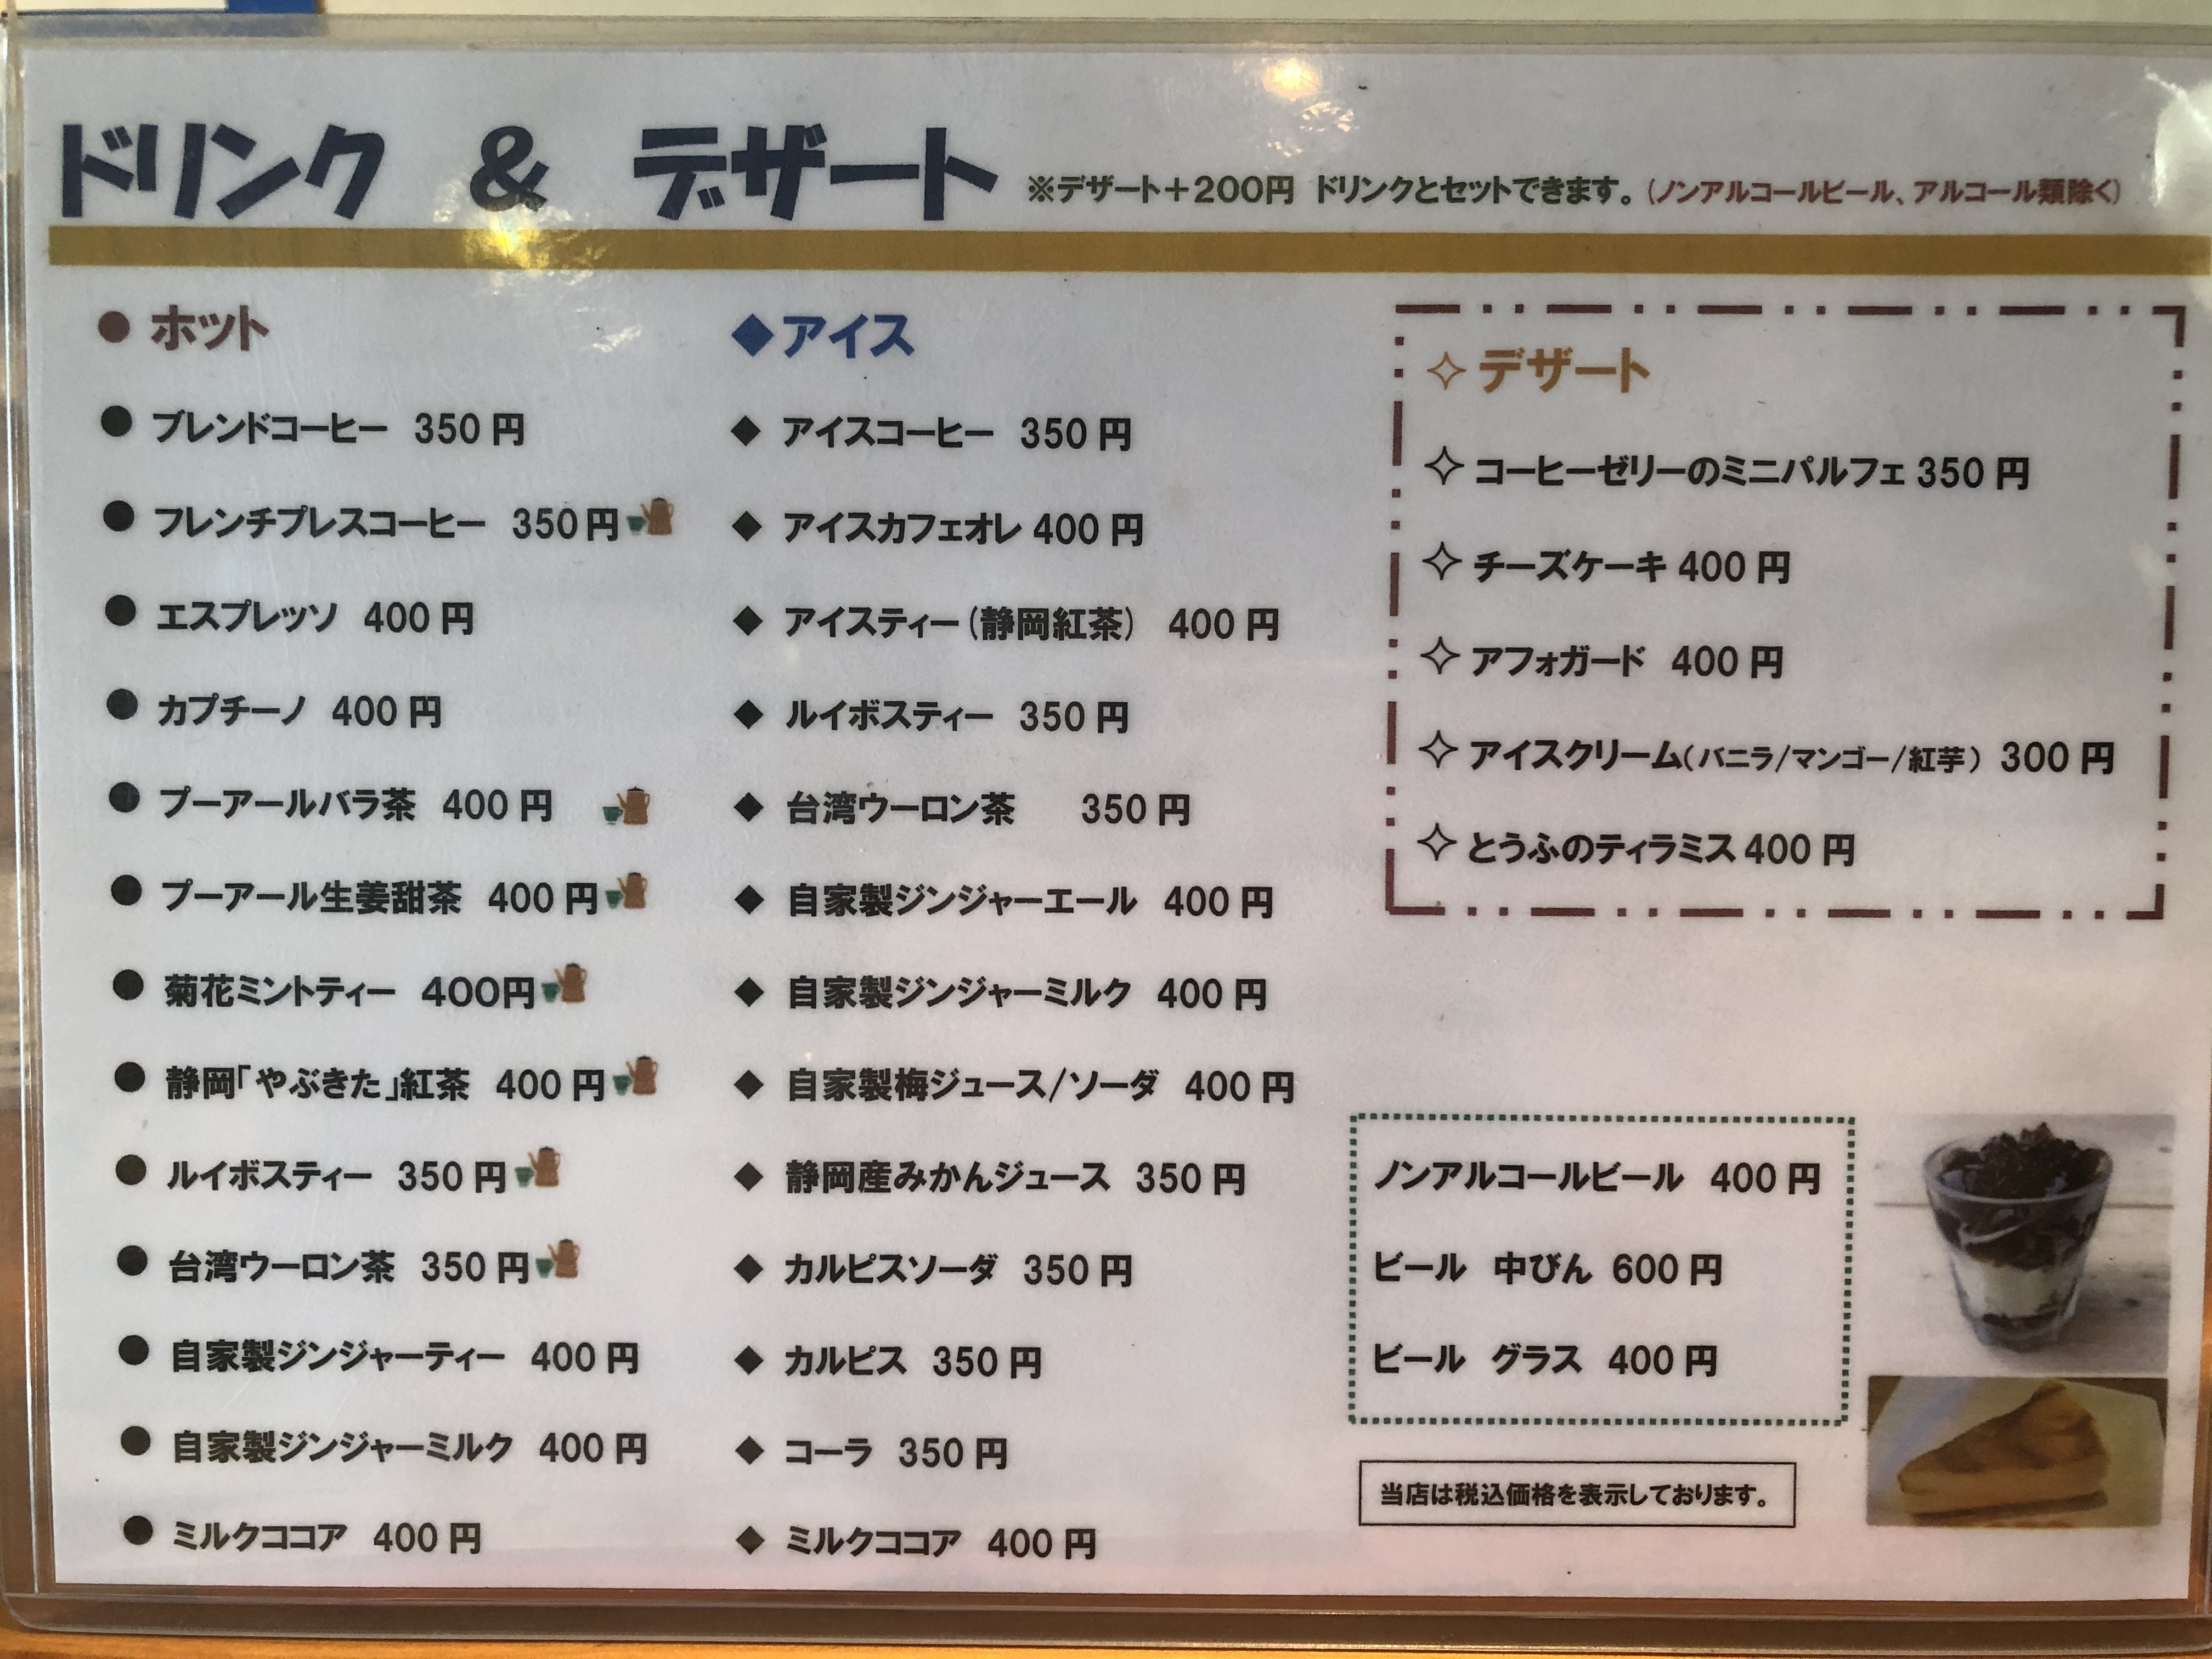 ドリンク & デザート ※デザート+200円 ドリンクとセットできます。(ノンアルコールビール、アルコール類除く)
● ホット
● ブレンドコーヒー 350 円
● フレンチプレスコーヒー 350円
● エスプレッソ 400 円
● カプチーノ 400 円
● プーアールバラ茶 400 円
● プーアール生姜甜茶 400 円
● 菊花ミントティー 400円
● 静岡「やぶきた」紅茶 400 円
● ルイボスティー 350 円
● 台湾ウーロン茶 350 円
● 自家製ジンジャーティー 400 円
● 自家製ジンジャーミルク 400 円
● ミルクココア 400 円
◆アイス
◆ アイスコーヒー 350 円
◆ アイスカフェオレ 400 円
◆ アイスティー(静岡紅茶) 400 円
◆ ルイボスティー 350 円
◆ 台湾ウーロン茶 350 円
◆ 自家製ジンジャーエール 400 円
◆ 自家製ジンジャーミルク 400 円
◆ 自家製梅ジュース/ソーダ 400 円
◆ 静岡産みかんジュース 350 円
◆ カルピスソーダ 350 円
◆ カルピス 350 円
◆ コーラ 350 円
◆ ミルクココア 400 円
✧ デザート
✧ コーヒーゼリーのミニパルフェ 350 円
✧ チーズケーキ 400 円
✧ アフォガード 400 円
✧ アイスクリーム(バニラ/マンゴー/紅芋) 300 円
✧ とうふのティラミス 400 円
ノンアルコールビール 400 円
ビール 中びん 600 円
ビール グラス 400 円
当店は税込価格を表示しております。